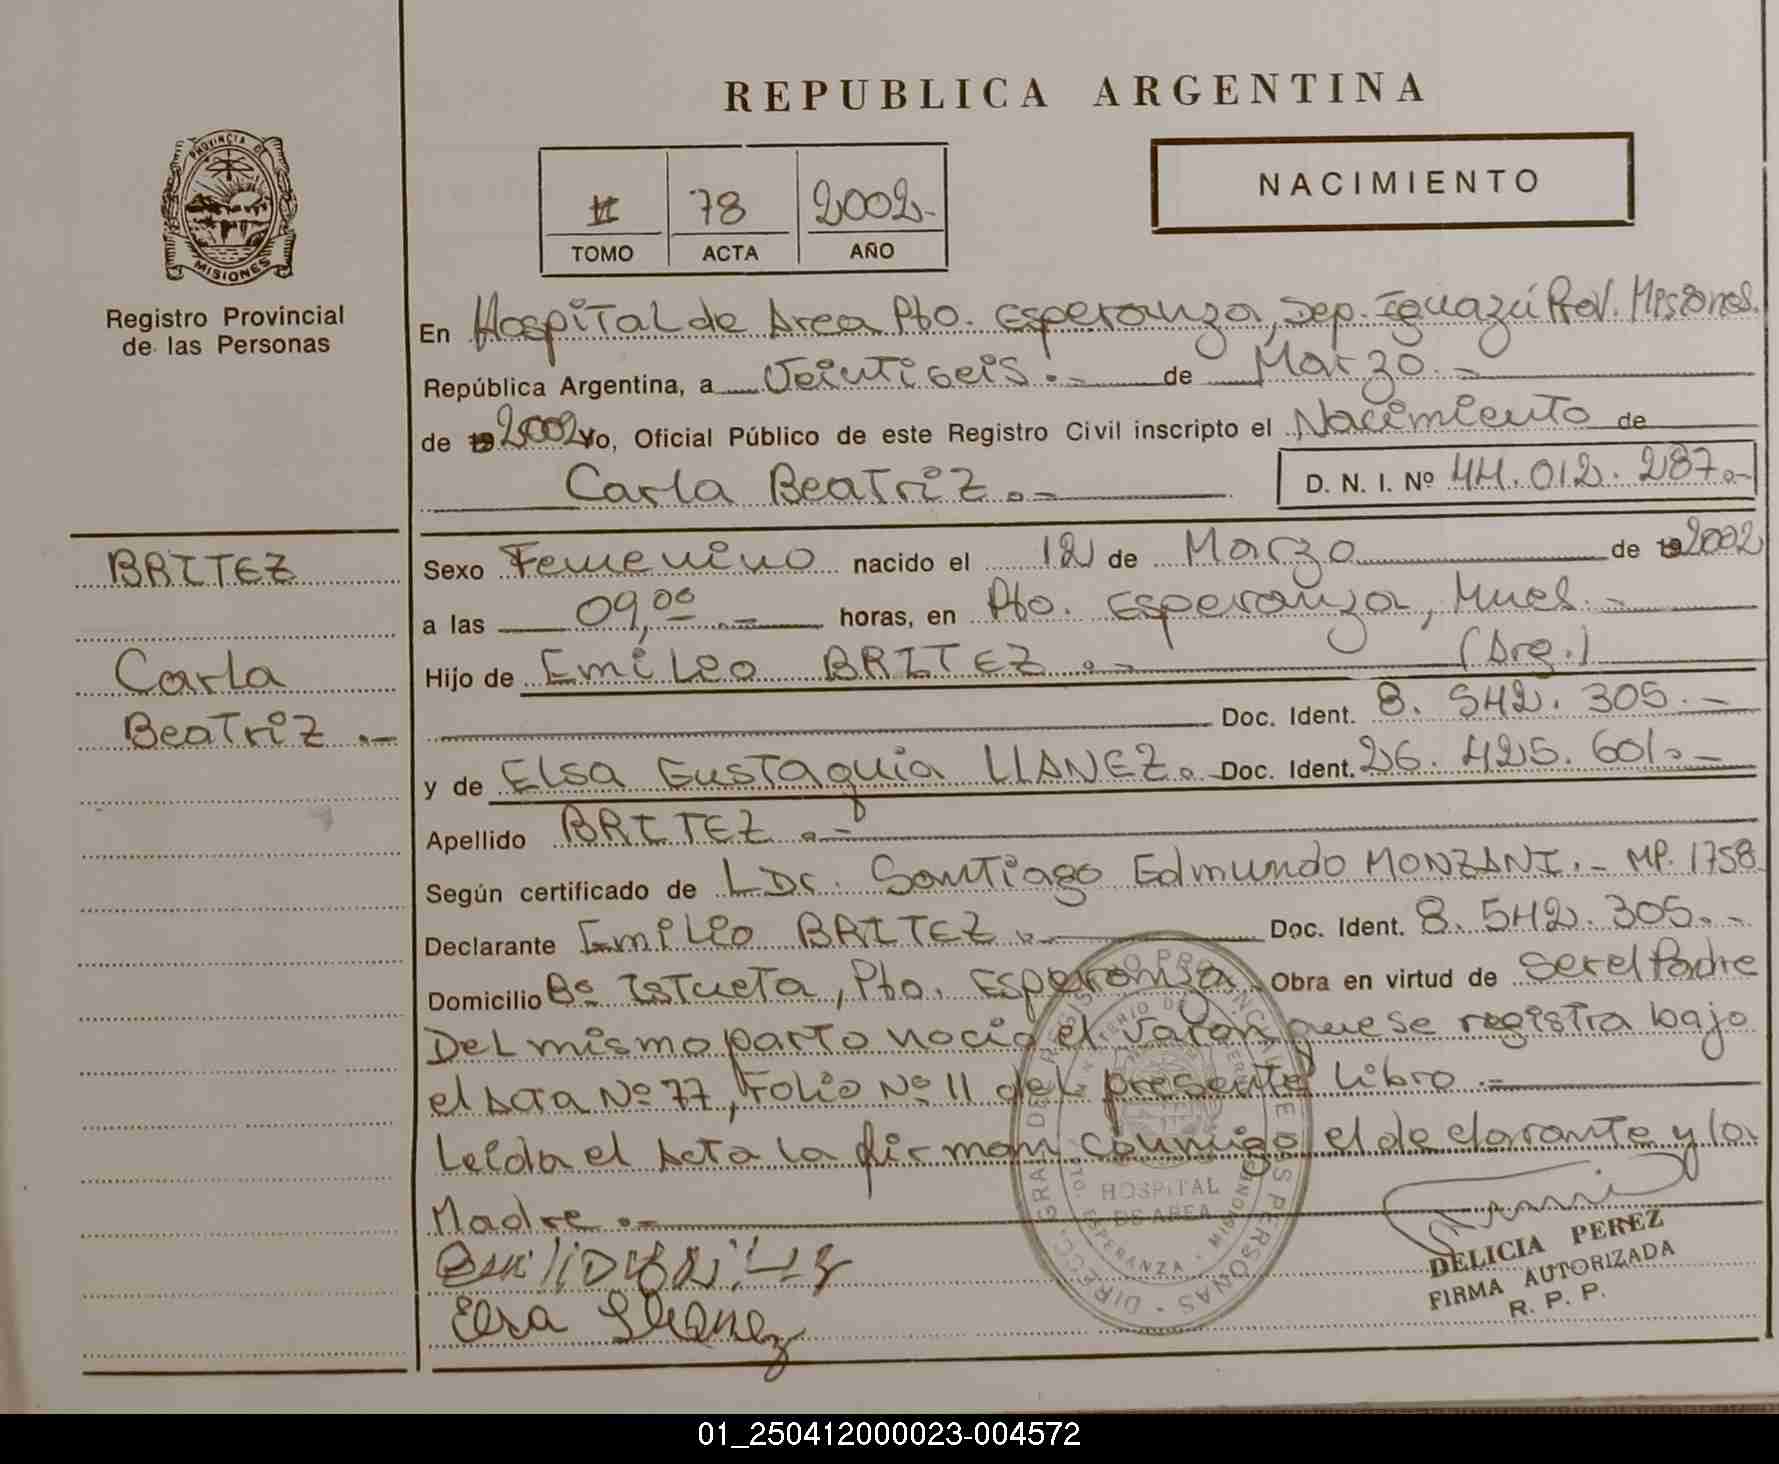 REPUBLICA ARGENTINA
NACIMIENTO
78 2002-
TOMO ACTA AÑO
PROVINCIA DE
MISIONES
Registro Provincial
de las Personas
En Hospital de Area Pto. Esperanza, Dep. Iguazú Prov. Misiones.
República Argentina, a Veintiseis.- de Marzo.-
de 19 2002 Yo, Oficial Público de este Registro Civil inscripto el Nacimiento de
Carla Beatriz.- D. N. I. Nº 44.012.287.-
BRITEZ
Carla
Beatriz.-
Sexo Femenino nacido el 12 de Marzo de 19 2002
a las 09,00.- horas, en Pto. Esperanza, Mnes.-
Hijo de Emilio BRITEZ.- (Arg.)
Doc. Ident. 8.542.305.-
y de Elsa Eustaquia LLANEZ. Doc. Ident. 26.425.601.-
Apellido BRITEZ.-
Según certificado de Dr. Santiago Edmundo MONZANI.- MP. 1758
Declarante Emilio BRITEZ.- Doc. Ident. 8.542.305.-
Domicilio Bº Istueta, Pto. Esperanza Obra en virtud de ser el Padre
Del mismo parto nació el varon que se registra bajo
el Acta Nº 77, Folio Nº 11 del presente Libro.-
Leída el Acta la firman conmigo el declarante y la
Madre.-
Elsa Llanez
HOSPITAL
DE AREA
DELICIA PEREZ
FIRMA AUTORIZADA
R. P. P.
01_250412000023-004572